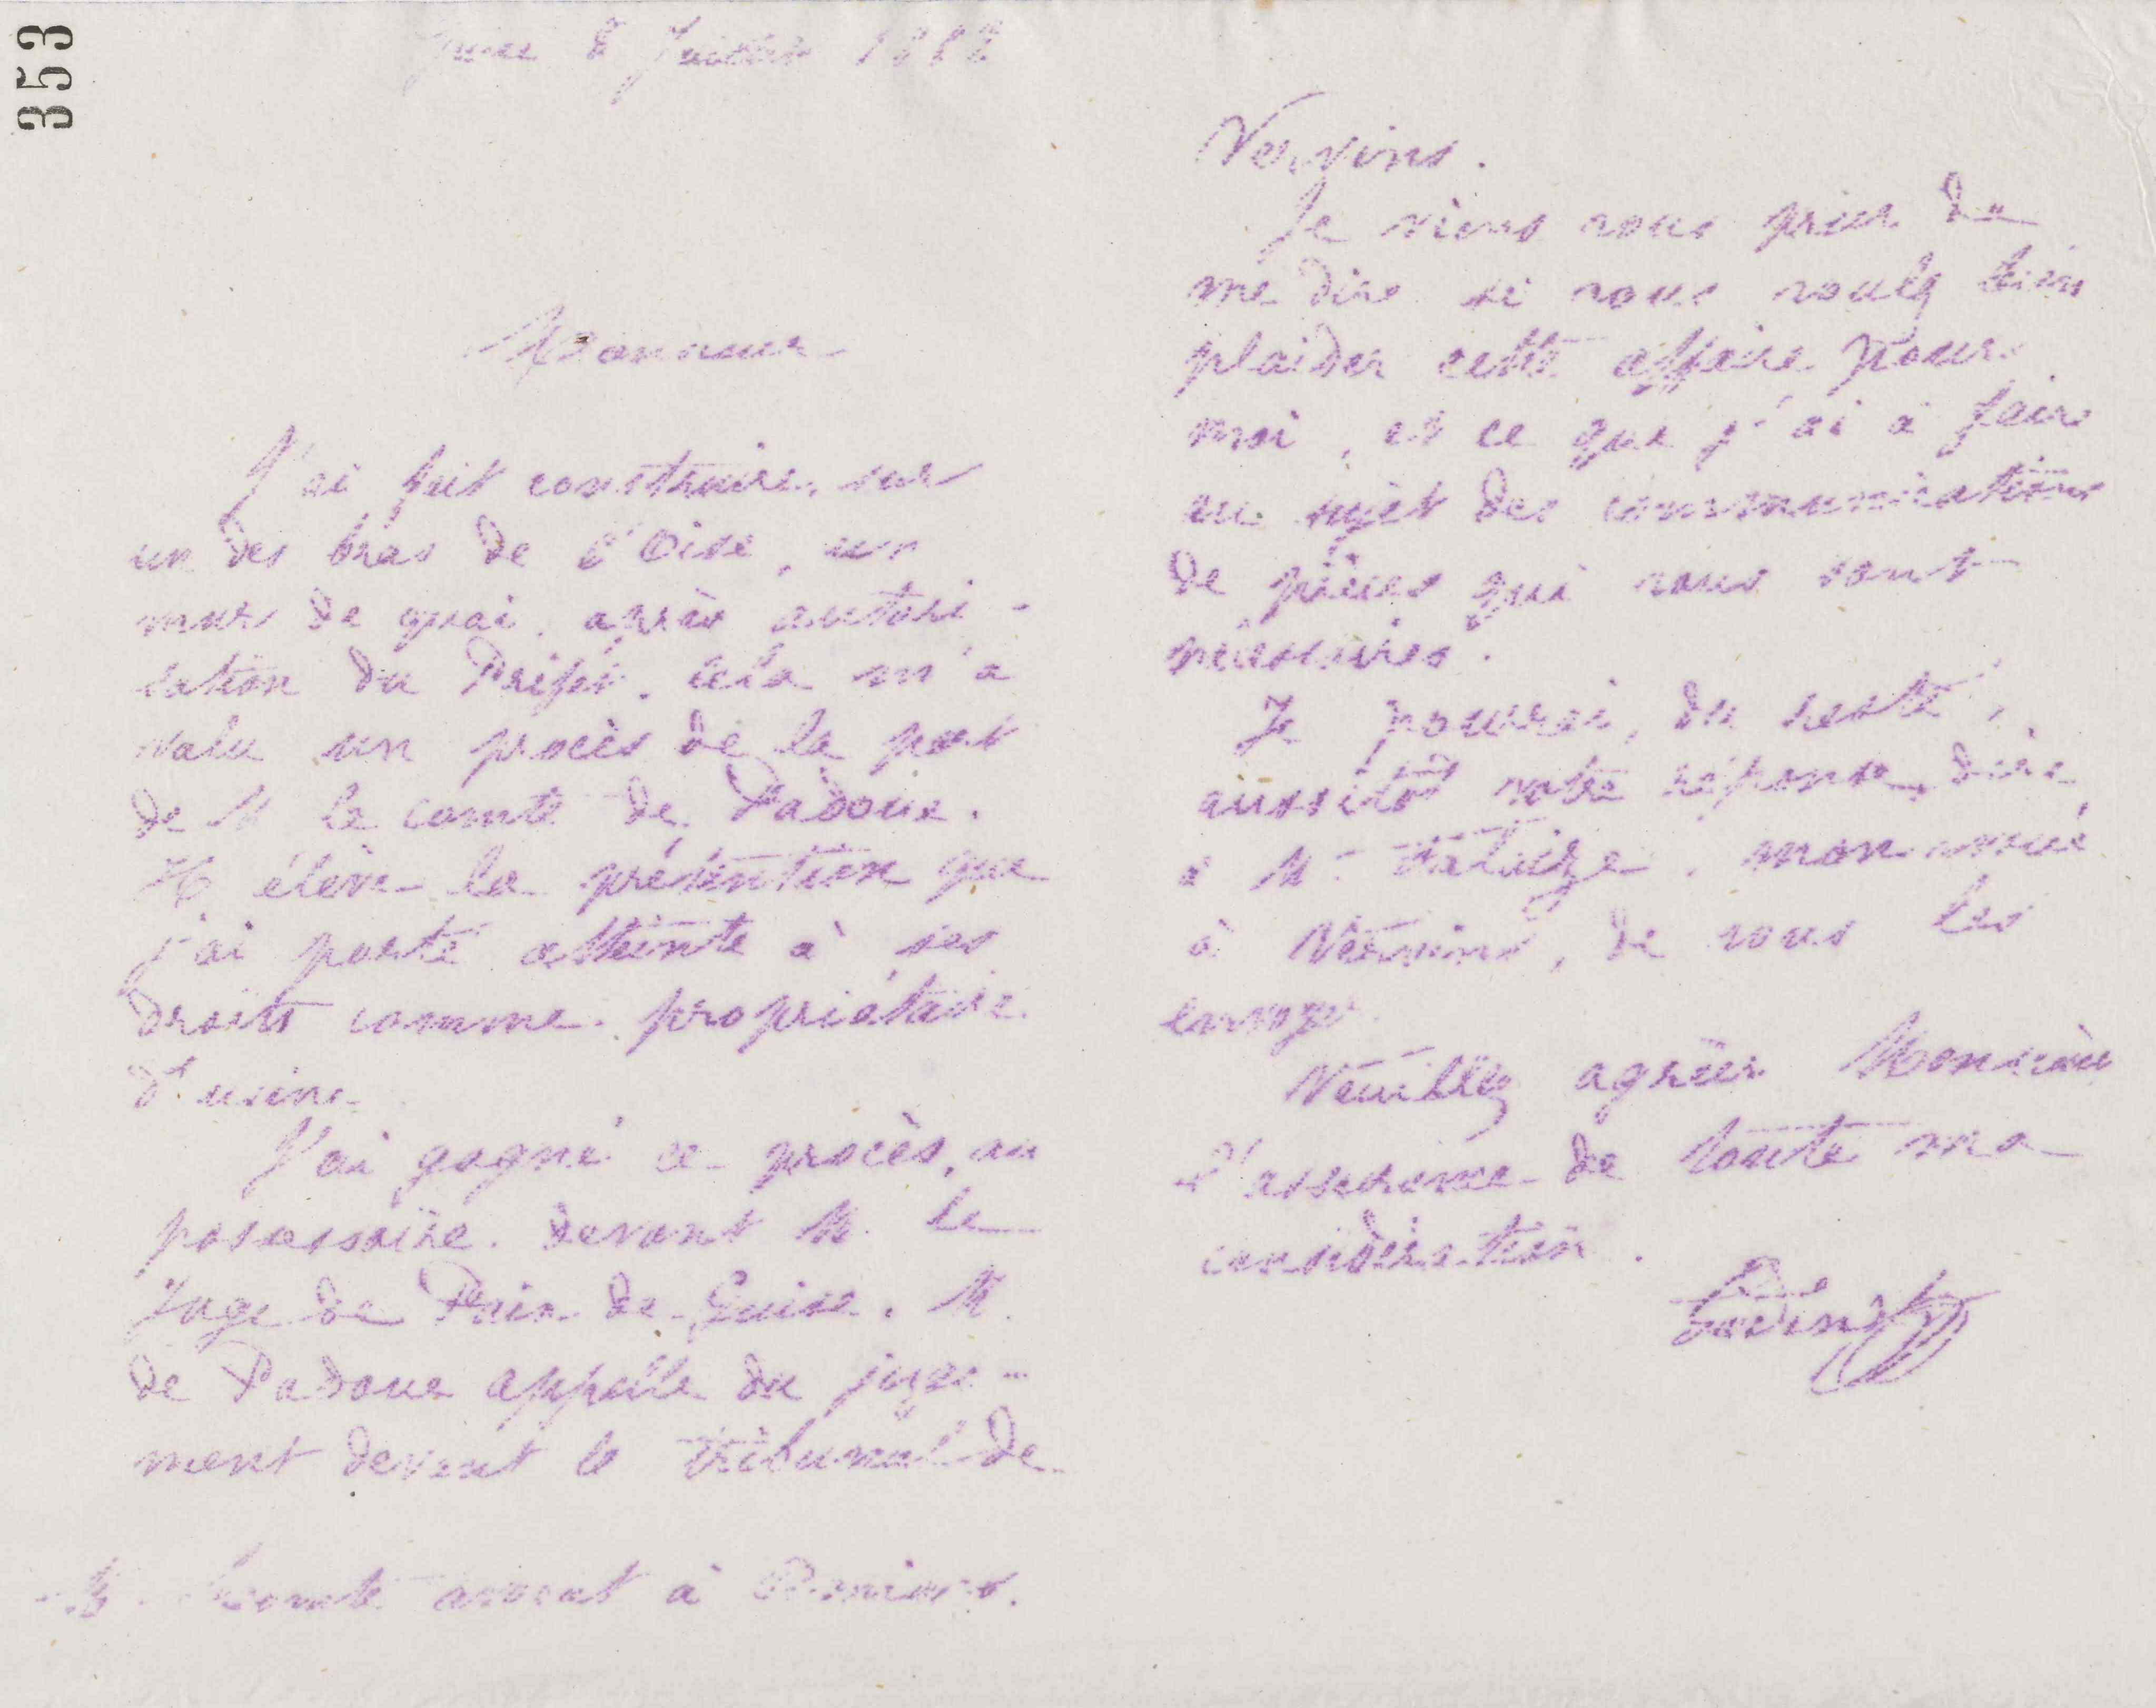 353
Guise 8 Juillet 1882
Monsieur
J'ai fait construire, sur
un des bras de l'Oise, un
mur de quai, après autori-
sation du Préfet. Cela m'a
valu un procès de la part
de M le comte de Padoue.
Il élève la prétention que
j'ai porté atteinte à ses
droits comme propriétaire
d'usine
J'ai gagné ce procès, au
possessoire devant M. le
Juge de Paix de Guise. M.
de Padoue appelle du juge-
ment devant le tribunal de
M. Lecomte avocat à
Vervins.
Je viens vous prier de
me dire si vous voulez bien
plaider cette affaire pour
moi, et ce que j'ai à faire
au sujet des communications
de pièces qui vous sont
nécessaires.
Je pourrai, du reste,
aussitôt votre réponse, dire
à M. mon avoué
à Vervins, de vous les
envoyer.
Veuillez agréer Monsieur
l'assurance de toute ma
considération.
Godin